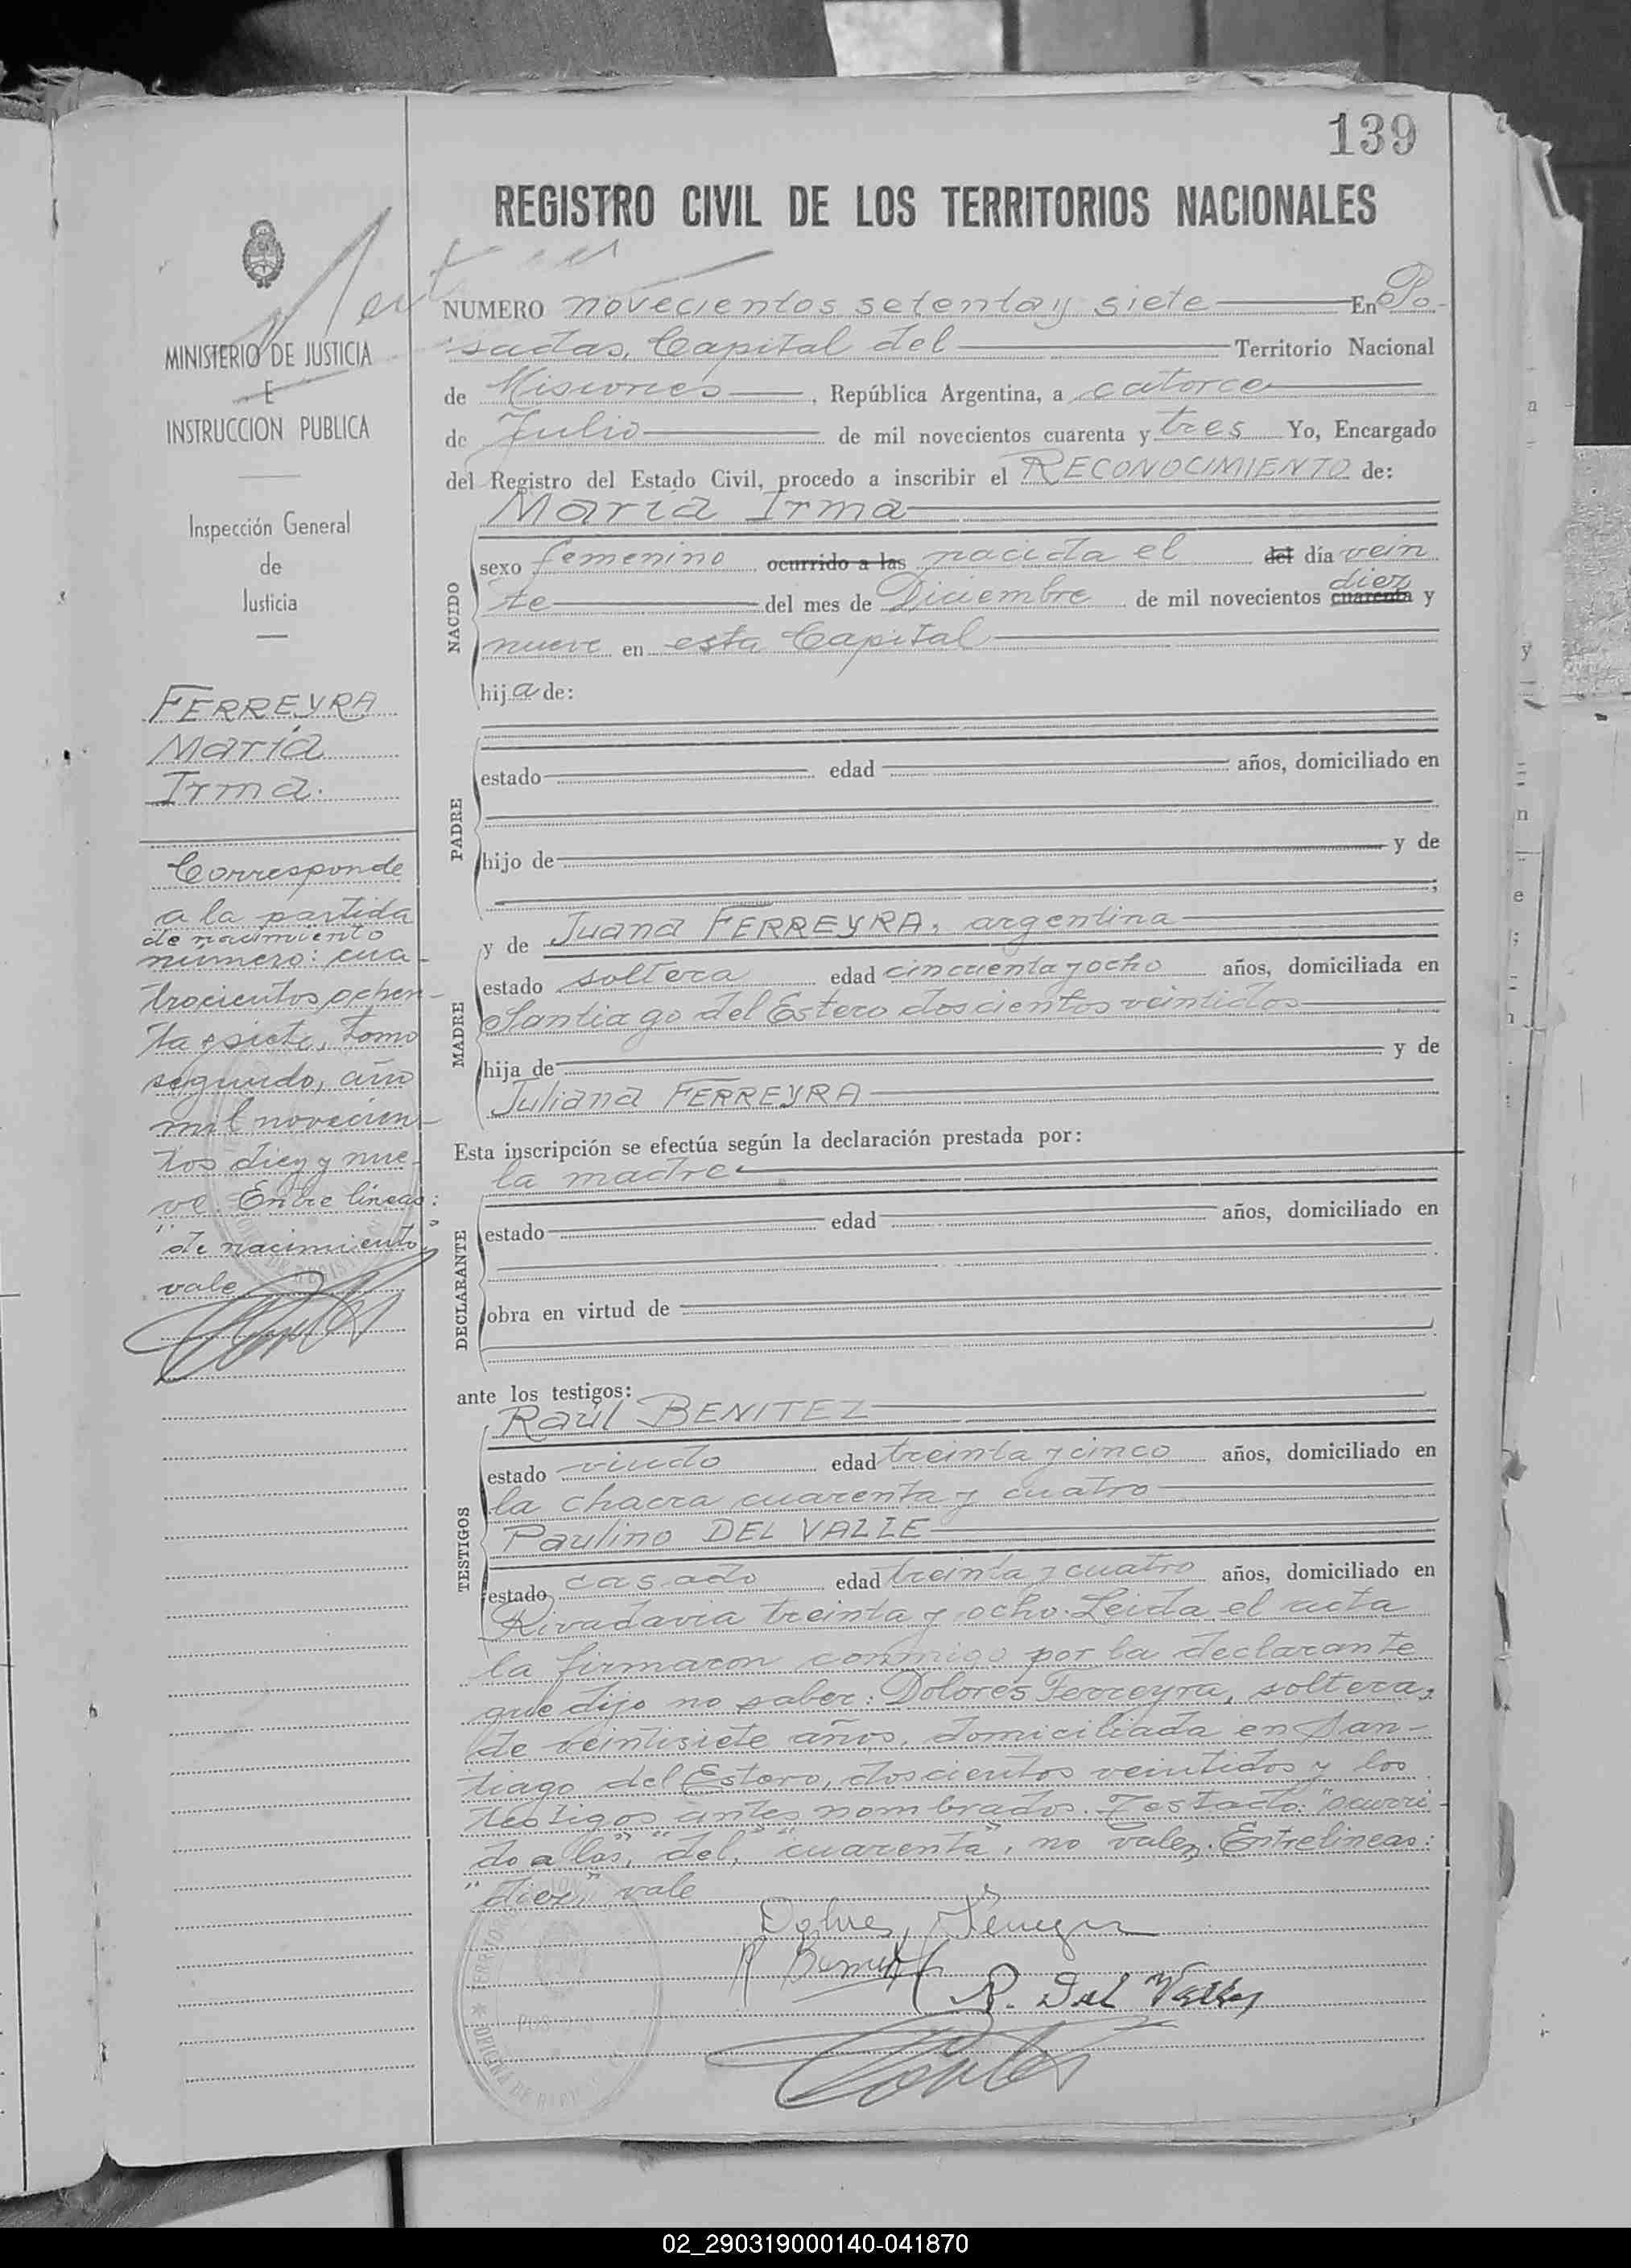 139
REGISTRO CIVIL DE LOS TERRITORIOS NACIONALES
MINISTERIO DE JUSTICIA
E
INSTRUCCION PUBLICA
Inspección General
de
Justicia
FERREYRA
María
Irma.
Corresponde
a la partida
de nacimiento
número: cua-
trocientos ochen-
ta y siete, tomo
segundo, año
mil novecien-
tos diez y nue-
ve. Entre líneas:
"de nacimiento"
vale
NUMERO novecientos setenta y siete En Po-
sadas, Capital del Territorio Nacional
de Misiones, República Argentina, a catorce
de Julio de mil novecientos cuarenta y tres Yo, Encargado
del Registro del Estado Civil, procedo a inscribir el RECONOCIMIENTO de:
NACIDO
María Irma
sexo femenino ocurrido a las nacida el del día vein
te del mes de Diciembre de mil novecientos cuarenta diez y
nueve en esta Capital
hija de:
PADRE
estado edad años, domiciliado en
hijo de y de
;
MADRE
y de Juana FERREYRA, argentina
estado soltera edad cincuenta y ocho años, domiciliada en
Santiago del Estero doscientos veintidos
hija de y de
Juliana FERREYRA
Esta inscripción se efectúa según la declaración prestada por:
la madre
DECLARANTE
estado edad años, domiciliado en
obra en virtud de
ante los testigos:
TESTIGOS
Raúl BENITEZ
estado viudo edad treinta y cinco años, domiciliado en
la chacra cuarenta y cuatro
Paulino DEL VALLE
estado casado edad treinta y cuatro años, domiciliado en
Rivadavia treinta y ocho. Leida el acta
la firmaron conmigo por la declarante
que dijo no saber: Dolores Ferreyra, soltera,
de veintisiete años, domiciliada en San-
tiago del Estero, doscientos veintidos y los
testigos antes nombrados. Testado: "ocurri-
do a las", "del", "cuarenta", no valen. Entrelineas:
"diez" vale
Dolores Ferreyra
R Benitez
P. Del Valle
02_290319000140-041870